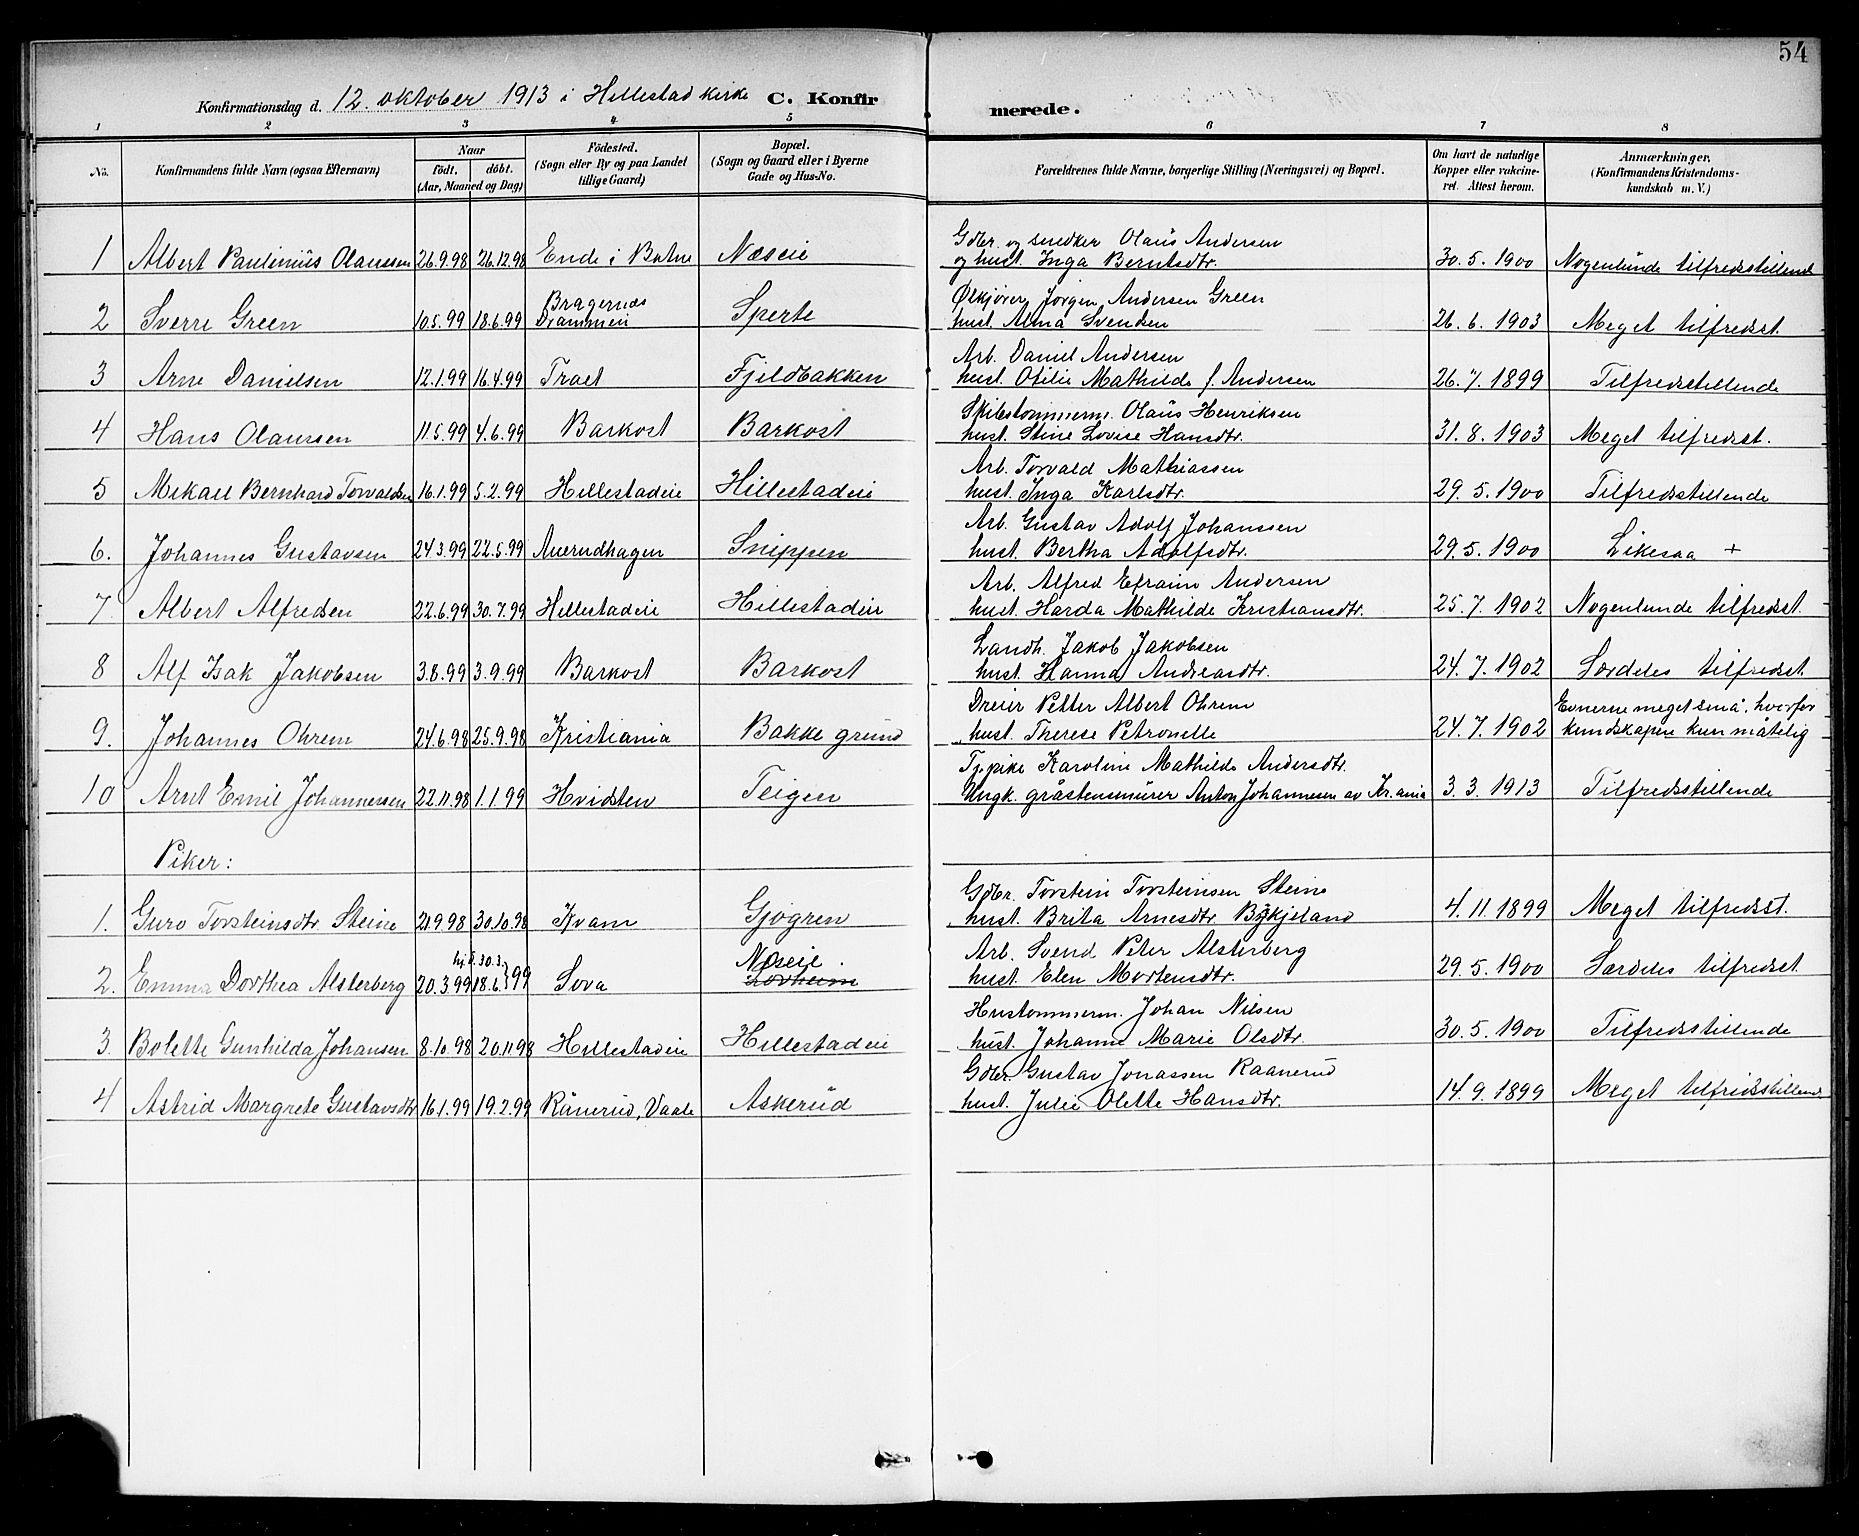 54
Konfirmationsdag d. 12. oktober 1913 i Hillestad kirke C. Konfirmerede.
1 2 3 4 5 6 7 8
No. Konfirmandens fulde Navn (ogsaa Efternavn) Naar født, døbt. (Aar, Maaned og Dag) Fødested. (Sogn eller By og paa Landet tillige Gaard) Bopæl. (Sogn og Gaard eller i Byerne Gade og Hus-No. Forældrenes fulde Navne, borgerlige Stilling (Næringsvei) og Bopæl. Om havt de naturlige Kopper eller vakcineret. Attest herom. Anmærkninger. (Konfirmandens Kristendomskundskab m. V.)
Gdbr. og snedker Olaus Andersen
1 Albert Paulinius Olaussen 26.9.98 26.12.98 Ende i Botne Næseie og hust. Inga Berntsdtr. 30.5.1900 Nogenlunde tilfredsstillende
Bragernes Ølkjører Jørgen Andersen Green
2 Sverre Green 10.5.99 18.6.99 Drammen Sperte hust. Alma Svendsen 26.6.1903 Meget tilfredsst.
Arb. Daniel Andersen
3 Arne Danielsen 12.1.99 16.4.99 Traet Fjeldbakken hust. Otilie Mathilde f. Andersen 26.7.1899 Tilfredsstillende
Skibstømmerm. Olaus Henriksen
4 Hans Olaussen 11.5.99 4.6.99 Barkost Barkost hust. Stine Lovise Hansdtr. 31.8.1903 Meget tilfredsst.
Arb. Torvald Mathiassen
5 Mikael Bernhard Torvaldsen 16.1.99 5.2.99 Hillestadeie Hillestadeie hust. Inga Karlsdtr. 29.5.1900 Tilfredsstillende
Arb. Gustav Adolf Johanssen
6. Johannes Gustavsen 24.3.99 22.5.99 Auerudhagen Snippen hust. Bertha Adolfsdtr. 29.5.1900 Likesaa +
Arb. Alfred Efraim Andersen
7. Albert Alfredsen 22.6.99 30.7.99 Hillestadeie Hillestadeie hust. Harda Mathilde Kristiansdtr. 25.7.1902 Nogenlunde tilfredsst.
Landh. Jakob Jakobsen
8 Alf Isak Jakobsen 3.8.99 3.9.99 Barkost Barkost hust. Hanna Andreasdtr. 24.7.1902 Særdeles tilfredsst.
Dreier Petter Albert Ohrem Evnerne meget små, hvorfor
9. Johannes Ohrem 24.6.98 25.9.98 Kristiania Bakke grund hust. Therese Petronelle 24.7.1902 kundskapen kun måtelig
Tj.pike Karoline Mathilde Andersdtr.
10 Arnt Emil Johannessen 22.11.98 1.1.99 Hvidsten Teigen Ungk. gråstensmurer Anton Johannesen av Kr.ania 3.3.1913 Tilfredsstillende
Piker:
Gdbr. Torstein Torsteinsen Steine
1. Guro Torsteinsdtr. Steine 21.9.98 30.10.98 Kvam Gjøgren hust. Brita Arnesdtr. Bykjeland 4.11.1899 Meget tilfredsst.
hj.d. 30.3. Næseie. Arb. Svend Peter Alsterberg
2. Emma Dorthea Alsterberg 20.3.99 18.6.}99 Sova Løvheim hust. Elen Mortensdtr. 29.5.1900 Særdeles tilfredsst.
Hustømmerm. Johan Nilsen
3. Bolette Gunhilda Johansen 8.10.98 20.11.98 Hillestadeie Hillestadeie hust. Johanne Marie Olsdtr. 30.5.1900 Tilfredsstillende
Gdbr. Gustav Jonassen Raanerud
4 Astrid Margrete Gustavsdtr 16.1.99 19.2.99 Rånerud, Vaale Askerud hust. Julie Olette Hansdtr. 14.9.1899 Meget tilfredsstillende